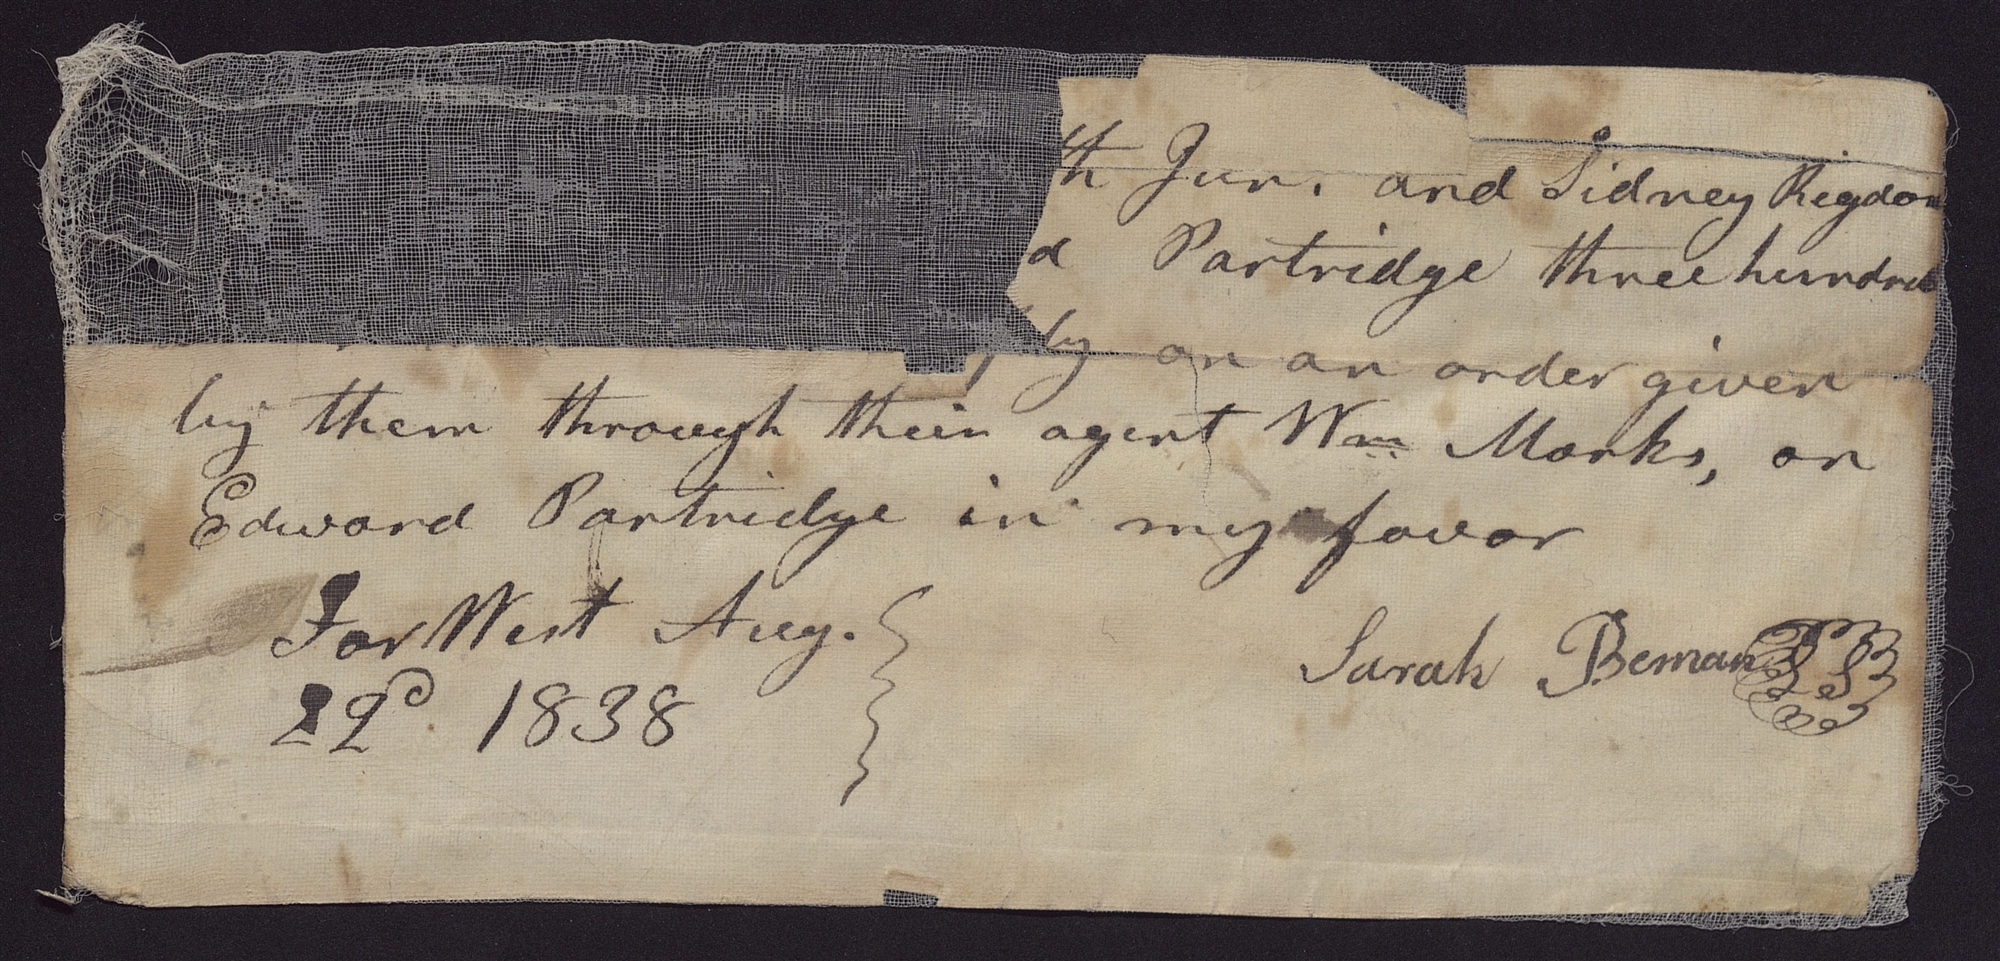 th Jun. and Sidney Rigdon
d Partridge three hundred
on an order given
by them through their agent Wm Marks, on
Edward Partridge in my favor
Far West Aug.
22d 1838
Sarah Beman